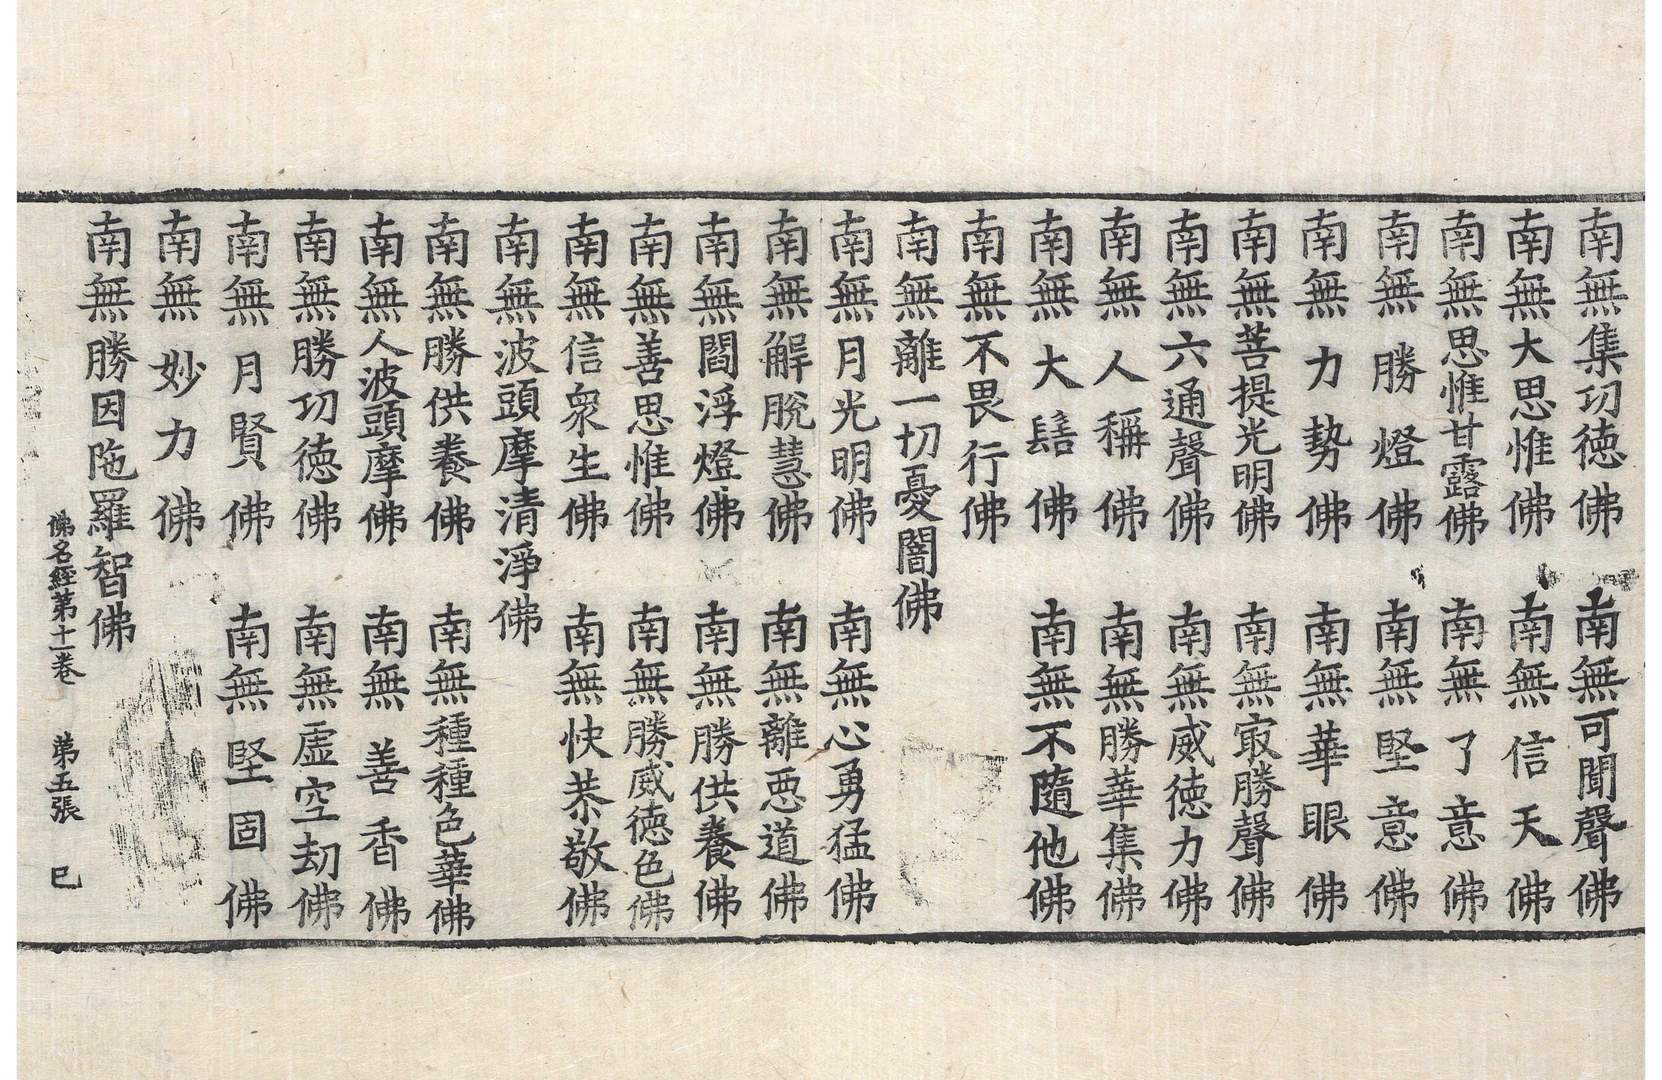 南無集功徳佛　南無可聞聲佛
南無大思惟佛　南無信天佛
南無思惟甘露佛　南無了意佛
南無勝燈佛　南無堅意佛
南無力勢佛　南無華眼佛
南無菩提光明佛　南無㝡勝聲佛
南無六通聲佛　南無威徳力佛
南無人稱佛　南無勝華集佛
南無大髻佛　南無不隨他佛
南無不畏行佛
南無離一切憂闇佛
南無月光明佛　南無心勇猛佛
南無解脫慧佛　南無離惡道佛
南無閻浮燈佛　南無勝供養佛
南無善思惟佛　南無勝威徳色佛
南無信衆生佛　南無快恭敬佛
南無波頭摩清淨佛
南無勝供養佛　南無種種色華佛
南無人波頭摩佛　南無善香佛
南無勝功徳佛　南無虛空刧佛
南無月賢佛　南無堅固佛
南無妙力佛
南無勝因陁羅智佛
佛名經第十一卷　第五張　巳